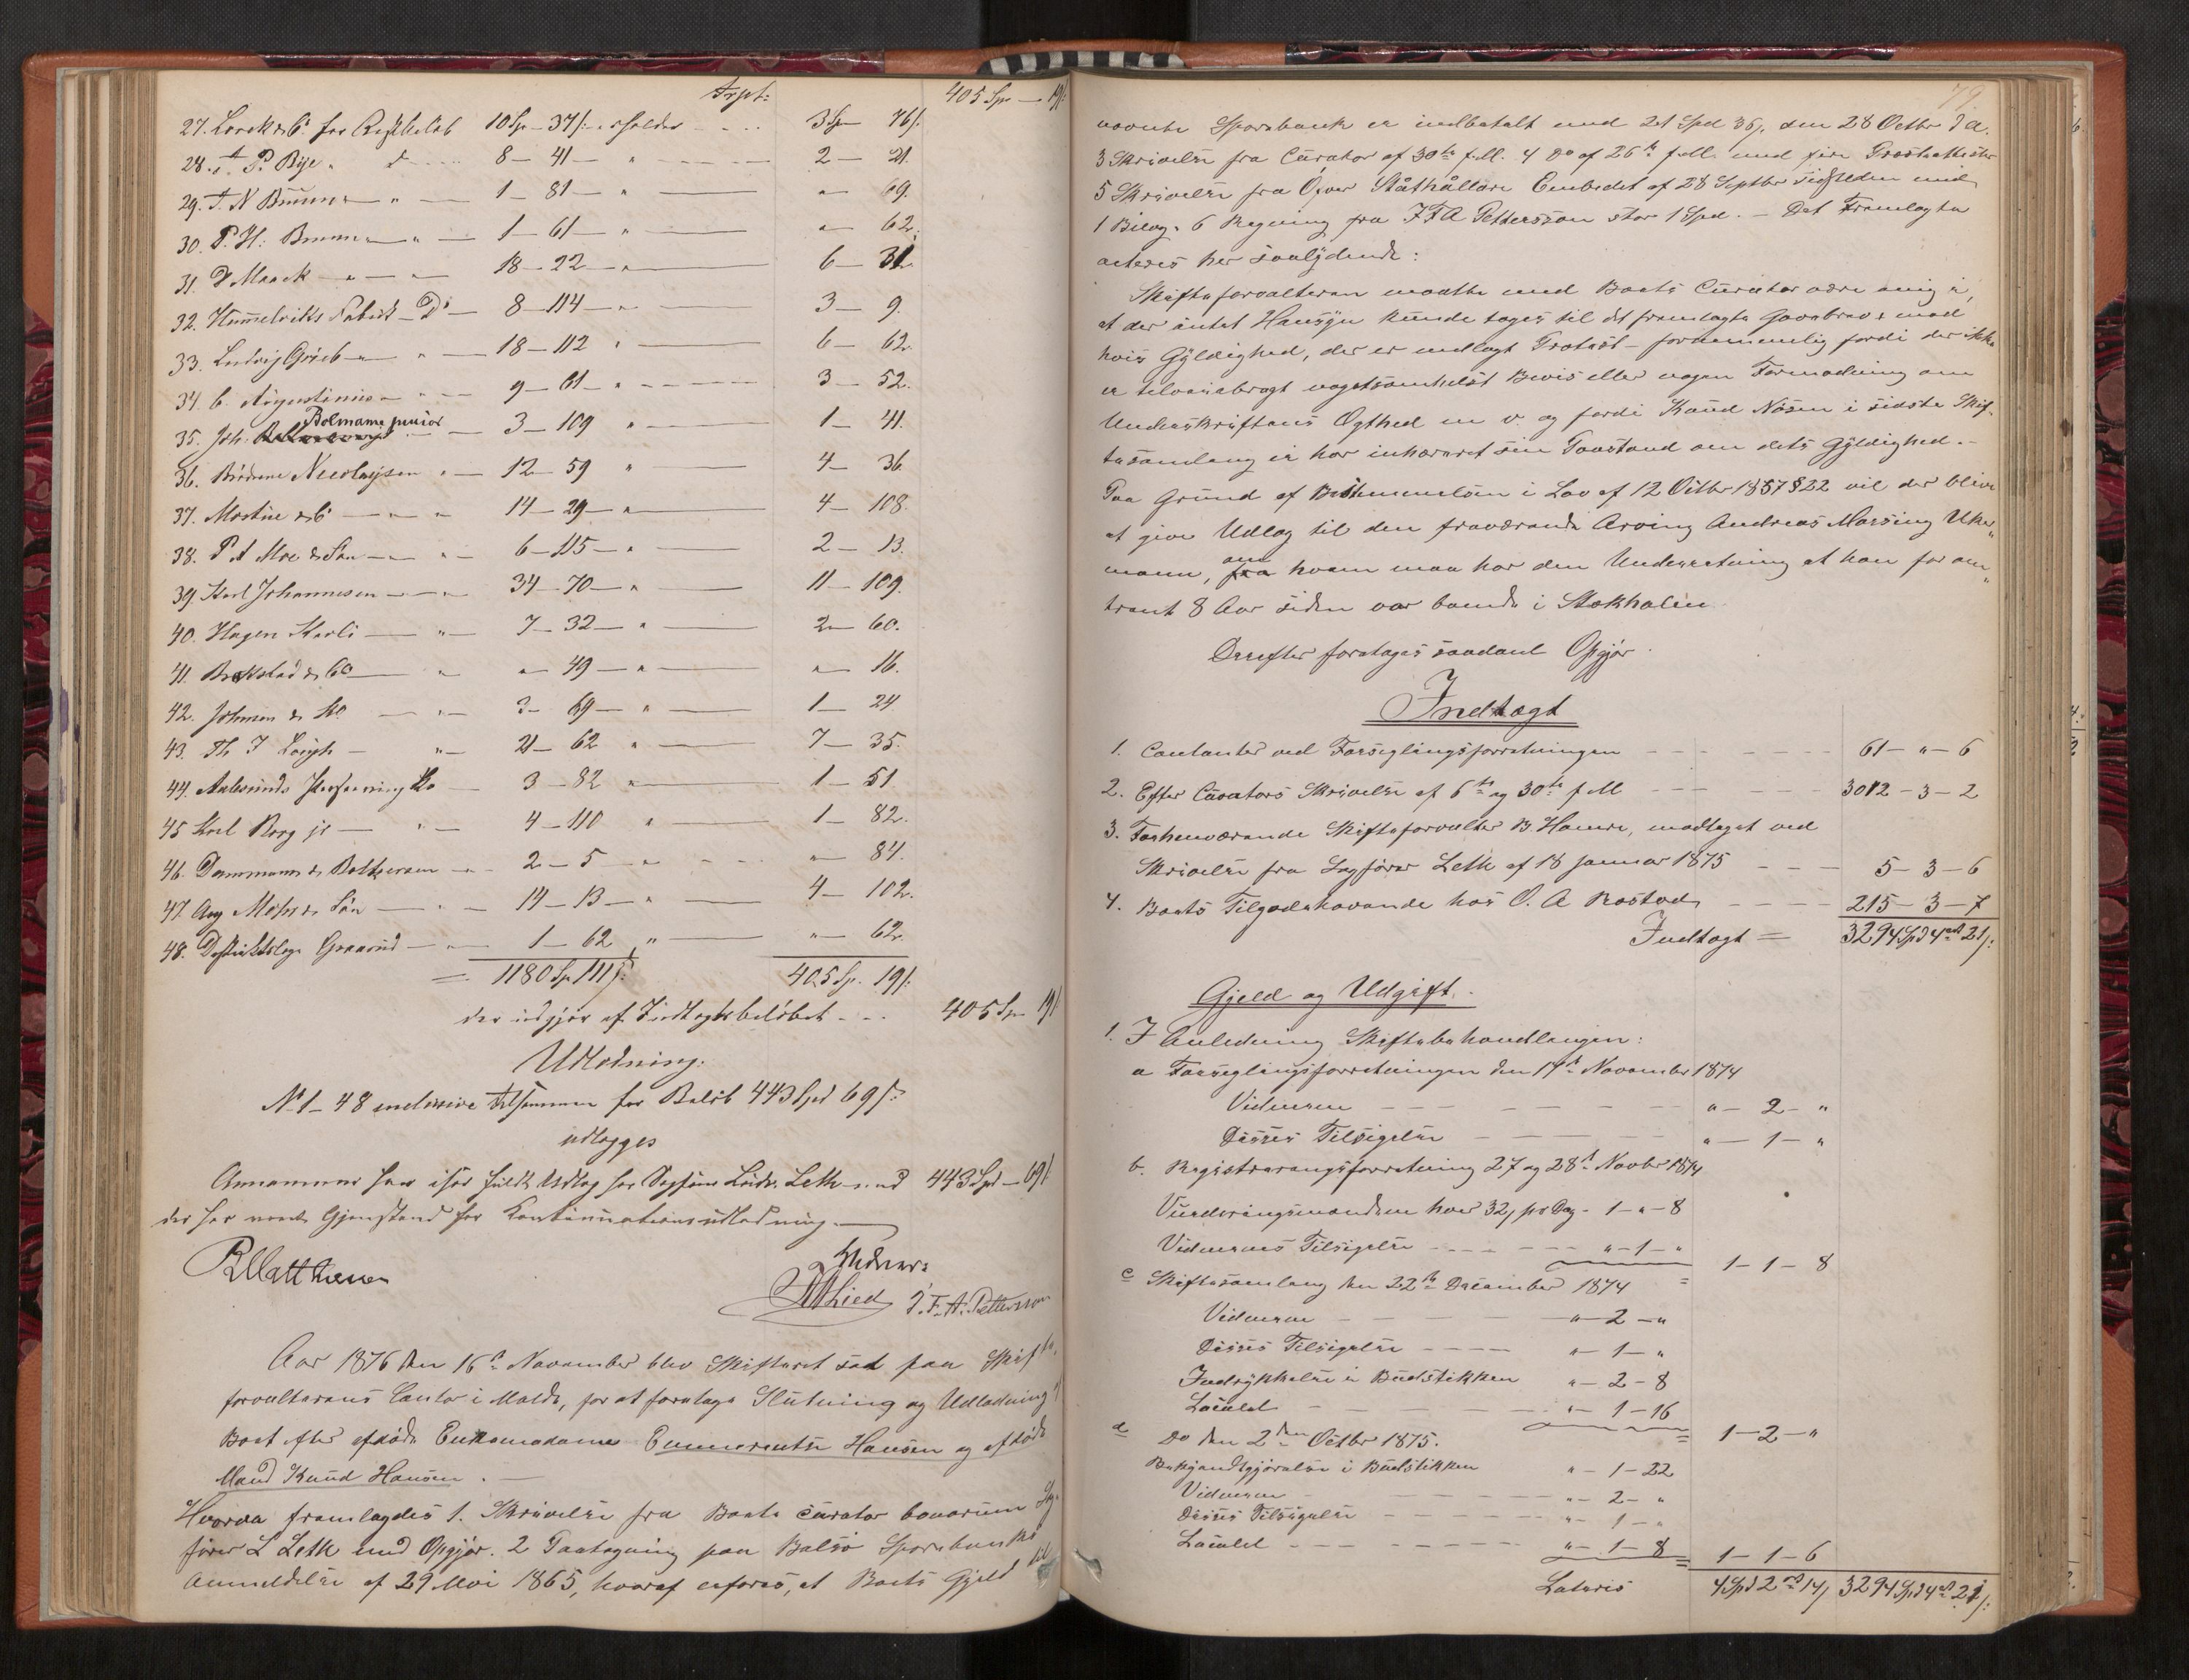 Trpt: 405 Sp — 19/:
27. Lorck & Co. for Restbeløb 10 Sp – 37/: erholder 3 Sp – 76/.
28. A. P. Bye " do 8 – 41 – " 2 – 21.
29. T. N Bruun " 1 – 81 – " " 69.
30. P. H: Bruun " 1 – 61 – " " 62.
31. D Maack " 18 – 22 – " 6 – 31.
32. Hummelviks Fabrik – Do 8 – 114 – " 3 – 9.
33. Ludvig Grieb " 18 – 112 " 6 – 62.
34. C. Augustinius " 9 – 61 – " 3 – 52.
35. Joh. Bolmann junior 3 – 109 " 1 – 41.
36. Brødrene Nicolaysen " 12 – 59 " 4 – 36.
37. Mostue & Co " 14 – 29 – " 4 – 108.
38. P A Moe & Søn " 6 – 115 – " 2 – 13.
39. Karl Johannesen " 34 – 70 – " 11 – 109.
40. Hagen Karli " 7 – 32 – " 2 – 60.
41. Brekstad & Co " " 49 – " " 16.
42. Johnsen & Ko. " 3 – 69 – " 1 – 24
43. Th J Løigh – " 21 – 62 " 7 – 35.
44. Aalesunds Preserving Ko 3 – 82 " 1 – 51
45 Karl Borg jr – " 4 – 110 " 1 – 82.
46. Dammann & Rolfsen " 2 – 5 – " " 84.
47. Aug Mohr & Søn " 14 – 13 – " 4 – 102.
48. Distriktslæge Graarud " 1 – 62 " " 62.
= 1180 Sp 111/: 405 Sp. 19/:
der udgjør af Indtægtsbeløbet 405 Sp 19/
Udlodning.
No 1 – 48 inclusive tilsammen for Beløb 443 Spd 69/:
udlægges
Annammer her især fuldt Udlæg hos Sagfører Leth med 443 Spd – 69/
der har været Gjenstand for Kontinuationsudlodning.
R Matthiesen
Vidner:
Lied J. F. A. Pettersson
Aar 1876 den 16de November blev Skifteret sat paa Skifte-
forvalterens Contor i Molde, for at foretage Slutning og Udlodning i
Boet efter afdøde Enkemadame Emmerentse Hansen og afdøde
Mand Knud Hansen.
Hvorva fremlagdes 1. Skrivelse fra Boets curator bonorum Sag-
fører L Leth med Opgjør. 2 Paategning paa Bolsø Sparebanks
Anmeldelse af 29 Mai 1865, hvoraf erfares, at Boets Gjeld til
79.
nævnte Sparebank er indbetalt med 21 Spd 36/. den 28 Octbr d A.
3 Skrivelse fra Curator af 30te f. M. 4 Do af 26de f. M. med fire Præsteattester
5 Skrivelse fra Öfver Ståthållare Embedet af 28 Septbr sidstleden med
1 Bilag. 6 Regning fra J F A Pettersson stor 1 Spd. – Det Fremlagte
acteres her saalydende:
Skifteforvalteren maatte med Boets Curator være enig i,
at der intet Hensyn kunde tages til det fremlagte Gavebrev mod
hvis Gyldighed, der er nedlagt Protest – fornemmelig fordi der ikke
er tilveiebragt nogetsomhelst Bevis eller nogen Formodning om
Underskriftens Ægthed m. v. og fordi Knud Nøsen i sidste Skif-
tesamling ei har inhæreret sin Paastand om dets Gyldighed. –
Paa Grund af Bestemmelsen i Lov af 12 Octbr 1857 § 22 vil der blive
at give Udlæg til den fraværende Arving Andreas Marsing Uke-
mann, om hvem man har den Underretning at han for om-
trent 8 Aar siden var boende i Stokholm.
Derefter foretages saadant Opgjør.
Indtægt
1. Contanter ved Forseglingsforretningen 61 – " – 6
2. Efter Curators Skrivelse af 6te og 30te f. M 3012 – 3 – 2
3. Forhenværende Skifteforvalter B. Hamre, modtaget ved
Skrivelse fra Sagfører Leth af 18 Januar 1875 5 – 3 – 6
4. Boets Tilgodehavende hos O. A Rostad 215 – 3 – 7
Indtægt = 3294 Spd 4 ort 21/:
Gjeld og Udgift.
1. I Anledning Skiftebehandlingen:
a Forseglingsforretningen den 17de November 1874
Vidnerne " – 2 – "
Disses Tilsigelse " – 1 – "
b. Registreringsforretning 27 og 28de Novbr 1874
Vurderingsmændene hver 32/ pr Dag – 1 – " – 8
Vidnernes Tilsigelse " – 1 – "
= 1 – 1 – 8
c Skiftesamling den 22de December 1874
Vidnerne " – 2 – "
Disses Tilsigelse " – 1 – "
Indrykkelse i Budstikken " – 2 – 8
Localet " – 1 – 16
= 1 – 2 – "
d Do den 2den Octbr 1875.
Bekjendtgjørelse i Budstikken " – 1 – 22
Vidnerne " – 2 – "
Disses Tilsigelse " – 1 – "
Localet " – 1 – 8
= 1 – 1 – 6
Lateris 4 Spd 2 ort 14/ 3294 Spd 4 ort 21/: